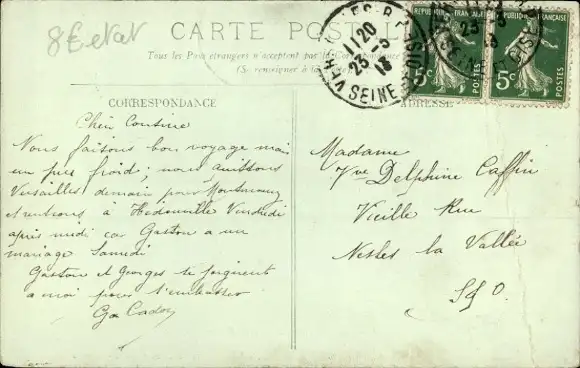 8 Etat
CARTE POSTALE
Tous les Pays étrangers n'acceptent pas la Correspondance
(Se renseigner à la
11 20
23-5
13
SEINE
RÉPUBLIQUE FRANÇAISE
5c
POSTES
RÉPUBLIQUE FRANÇAISE
5c
POSTES
CORRESPONDANCE
ADRESSE
Chère Cousine
Nous faisons bon voyage mais
un peu froid; nous quittons
Versailles demain pour
et rentrons à Hédouville Vendredi
après midi car Gaston a un
mariage Samedi
Gaston et Georges se joignent
a moi pour t'embrasser
Madame
Vve Delphine Caffin
Vieille Rue
Nesles la Vallée
S & O.